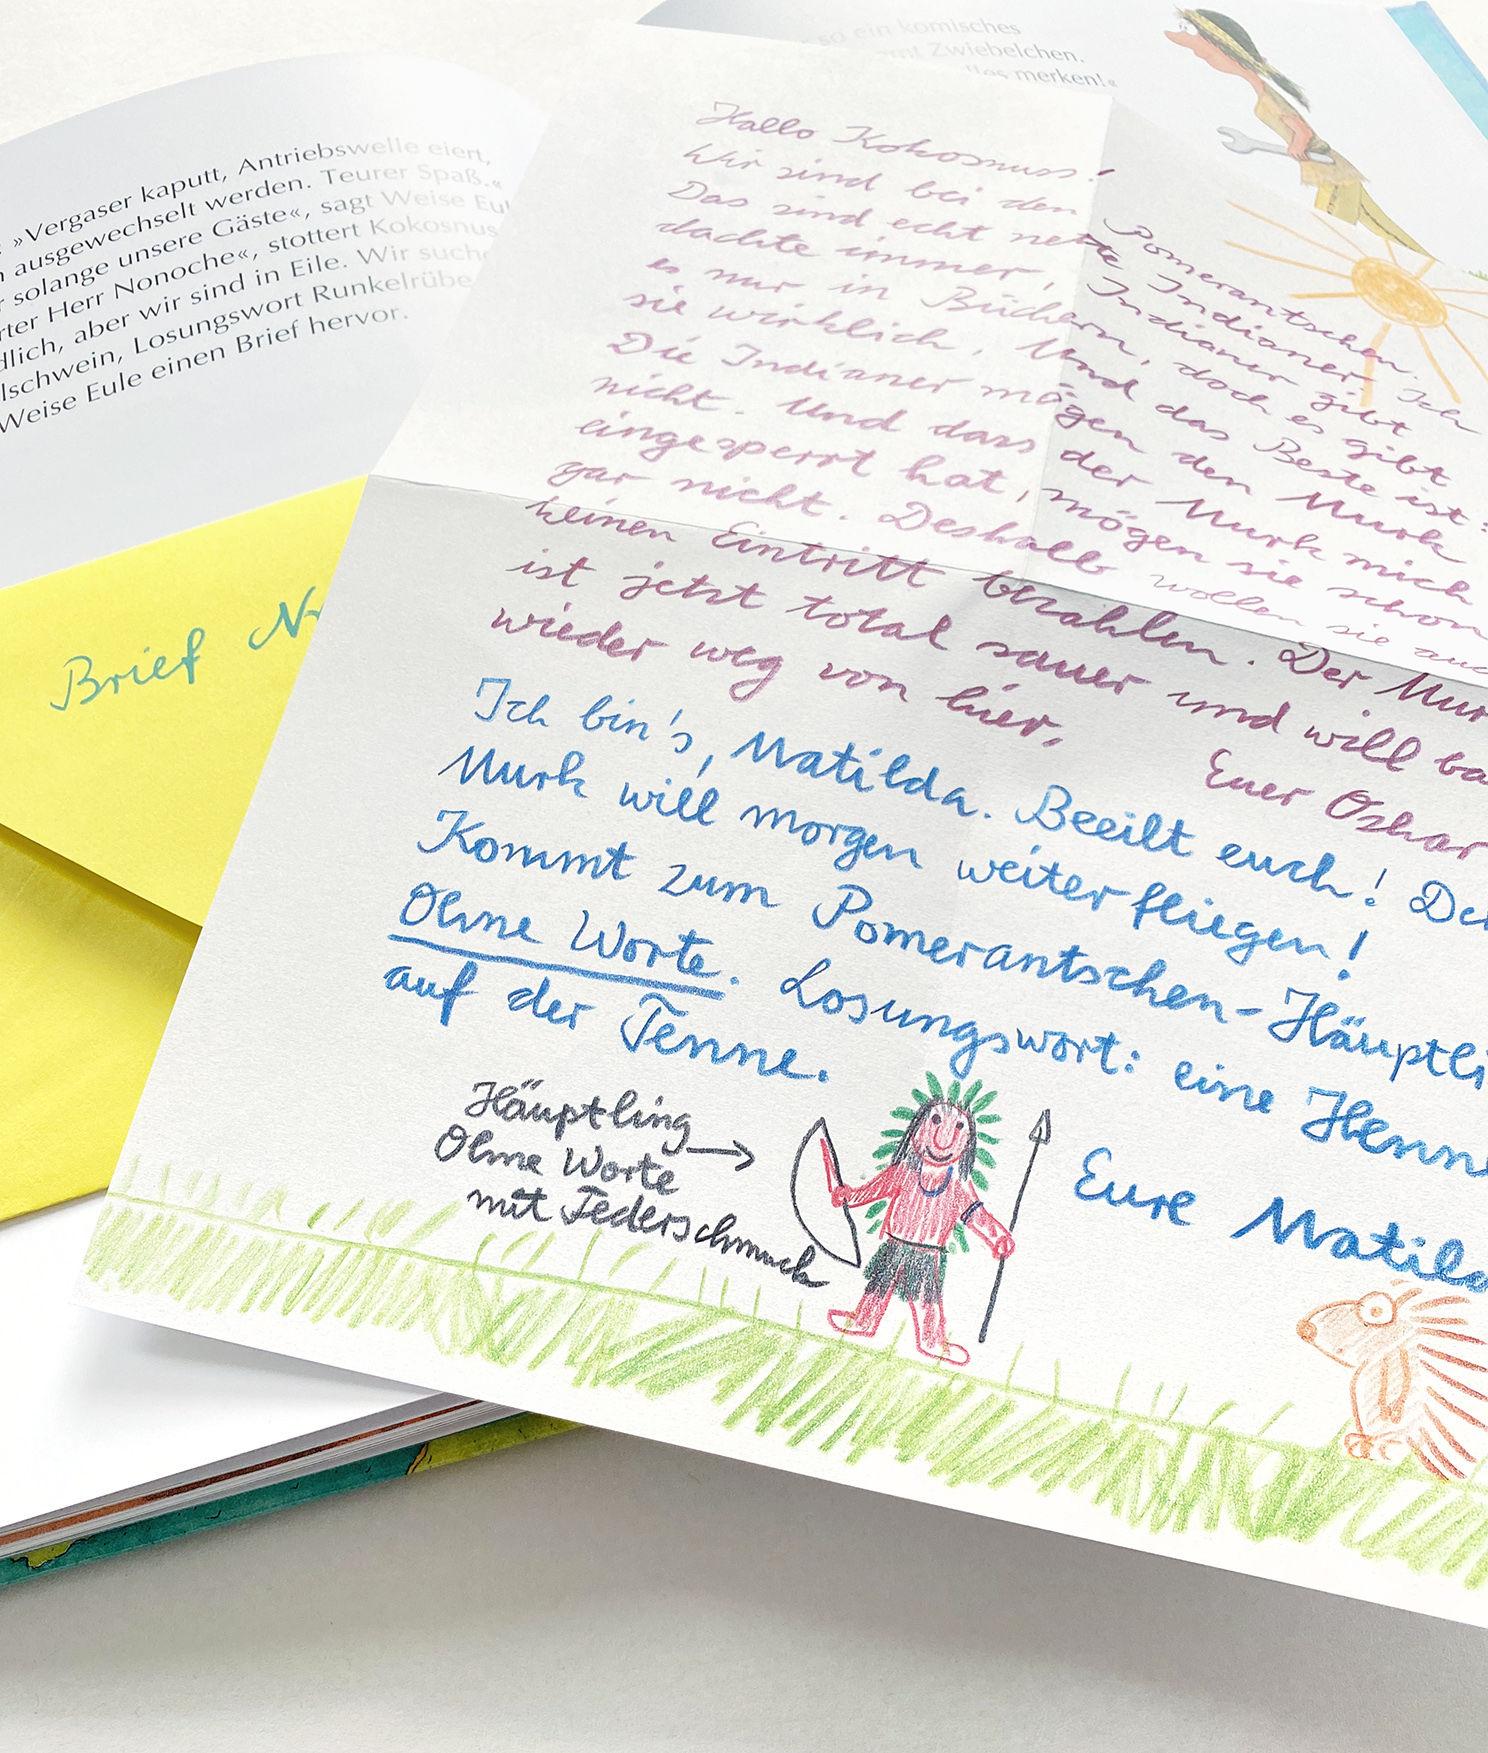 so ein komisches
Zwiebelchen.
merken!«
»Vergaser kaputt, Antriebswelle eiert,
ausgewechselt werden. Teurer Spaß.«
solange unsere Gäste«, sagt Weise Eu
Herr Nonoche«, stottert Kokosnus
aber wir sind in Eile. Wir suche
lschwein, Losungswort Runkelrübe
Weise Eule einen Brief hervor.
Brief N
Hallo Kokosnuss!
Wir sind bei den Pomerantschen.
Das sind echt nette Indianer. Ich
dachte immer, Indianer gibt
es nur in Büchern, doch es gibt
sie wirklich. Und das Beste ist:
Die Indianer mögen den Murk
nicht. Und dass der Murk mich
eingesperrt hat, mögen sie schon
gar nicht. Deshalb wollen sie auc
keinen Eintritt bezahlen. Der Mur
ist jetzt total sauer und will ba
wieder weg von hier,
Euer Oskar
Ich bin's, Matilda. Beeilt euch! De
Murk will morgen weiterfliegen!
Kommt zum Pomerantschen-Häuptli
Ohne Worte. Losungswort: eine Henne
auf der Tenne.
Eure Matilda
Häuptling →
Ohne Worte
mit Federschmuck